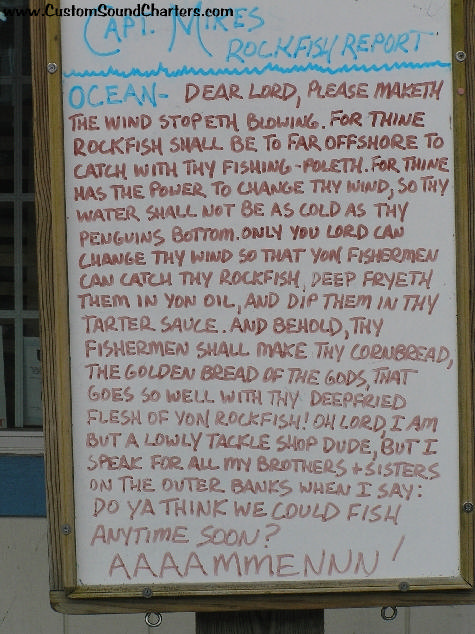 www.CustomSoundCharters.com
CAPT. MIKES
ROCKFISH REPORT
OCEAN- DEAR LORD, PLEASE MAKETH
THE WIND STOPETH BLOWING. FOR THINE
ROCKFISH SHALL BE TO FAR OFFSHORE TO
CATCH WITH THY FISHING-POLETH. FOR THINE
HAS THE POWER TO CHANGE THY WIND, SO THY
WATER SHALL NOT BE AS COLD AS THY
PENGUINS BOTTOM. ONLY YOU LORD CAN
CHANGE THY WIND SO THAT YON FISHERMEN
CAN CATCH THY ROCKFISH, DEEP FRYETH
THEM IN YON OIL, AND DIP THEM IN THY
TARTER SAUCE. AND BEHOLD, THY
FISHERMEN SHALL MAKE THY CORNBREAD,
THE GOLDEN BREAD OF THE GODS, THAT
GOES SO WELL WITH THY DEEPFRIED
FLESH OF YON ROCKFISH! OH LORD, I AM
BUT A LOWLY TACKLE SHOP DUDE, BUT I
SPEAK FOR ALL MY BROTHERS + SISTERS
ON THE OUTER BANKS WHEN I SAY:
DO YA THINK WE COULD FISH
ANYTIME SOON?
AAAAMMENNN!